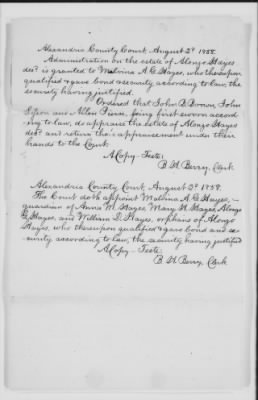 Alexandria County Court, August 2d 1858.
Administration on the estate of Alonzo Hayes
decd is granted to Malvina A. G. Hayes, who thereupon
qualified & gave bond & security according to law, the
security having justified.
Ordered that John B. Brown, John
and Allen Pierce, being first sworn accord-
ing to law, do appraise the estate of Alonzo Hayes
decd and return the appraisement under their
hands to the Court.
A Copy - Teste:
B. H. Berry, Clerk
Alexandria County Court, August 2d 1858.
The Court doth appoint Malvina A. G. Hayes,
guardian of Anna M. Hayes, Mary H. Hayes, Alonzo
G. Hayes, and William D. Hayes, orphans of Alonzo
Hayes, who thereupon qualified & gave bond and se-
curity according to law, the security having justified
A Copy - Teste:
B. H. Berry, Clerk